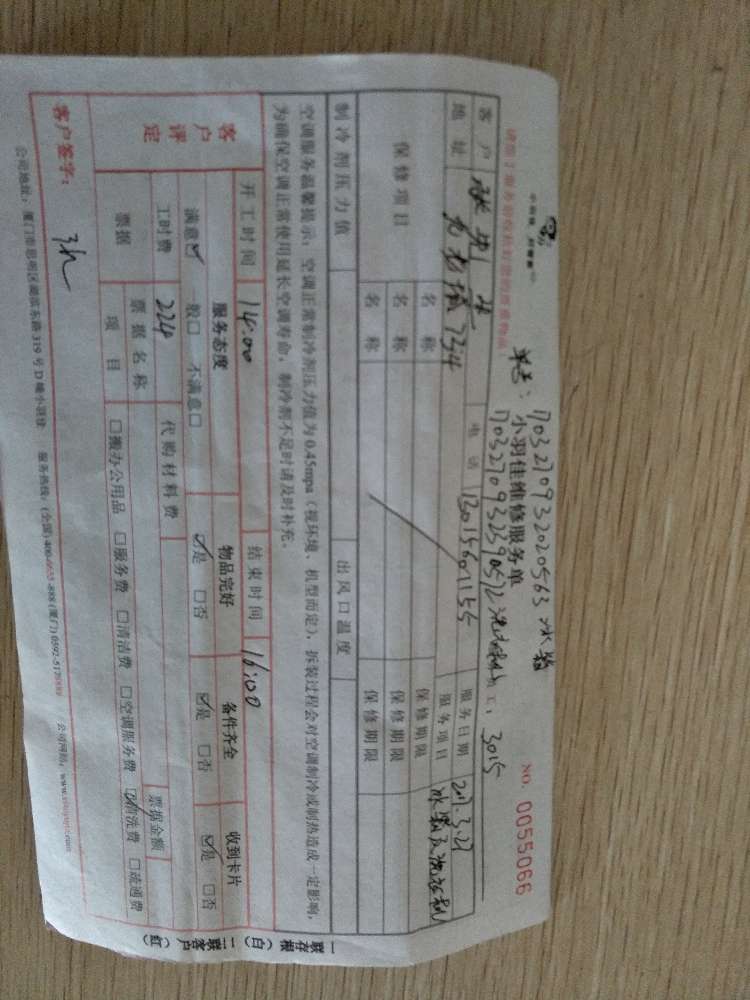 单号: 1703270932020563 冰箱
小羽佳维修服务单
1703270932390572洗衣机
工: 3015
NO. 0055066
客户
电话 13015601155
服务日期 2017.3.27
地址 7234
服务项目 冰箱及洗衣机
保修项目
名称
保修期限
名称
保修期限
名称
保修期限
制冷剂压力值
出风口温度
空调服务温馨提示: 空调正常制冷剂压力值为0.45mpa (视环境、机型而定), 拆装过程会对空调制冷或制热造成一定影响,
为确保空调正常使用延长空调寿命, 制冷剂不足时请及时补充。
开工时间 14:00
结束时间 16:00
客户评定
服务态度
物品完好
备件齐全
收到卡片
满意☑ 一般□ 不满意□
☑是 □否
☑是 □否
☑是 □否
工时费 224
代购材料费
票据
票据名称
票据金额
项目
□搬办公用品 □服务费 □清洁费 □空调服务费 ☑清洗费 □疏通费
客户签字:
公司地址: 厦门市思明区湖滨东路319号D幢小羽佳 服务热线: (全国) 400-6655-888 (厦门) 0592-5179
公司网站:
一联存根 (白) 二联客户 (红)